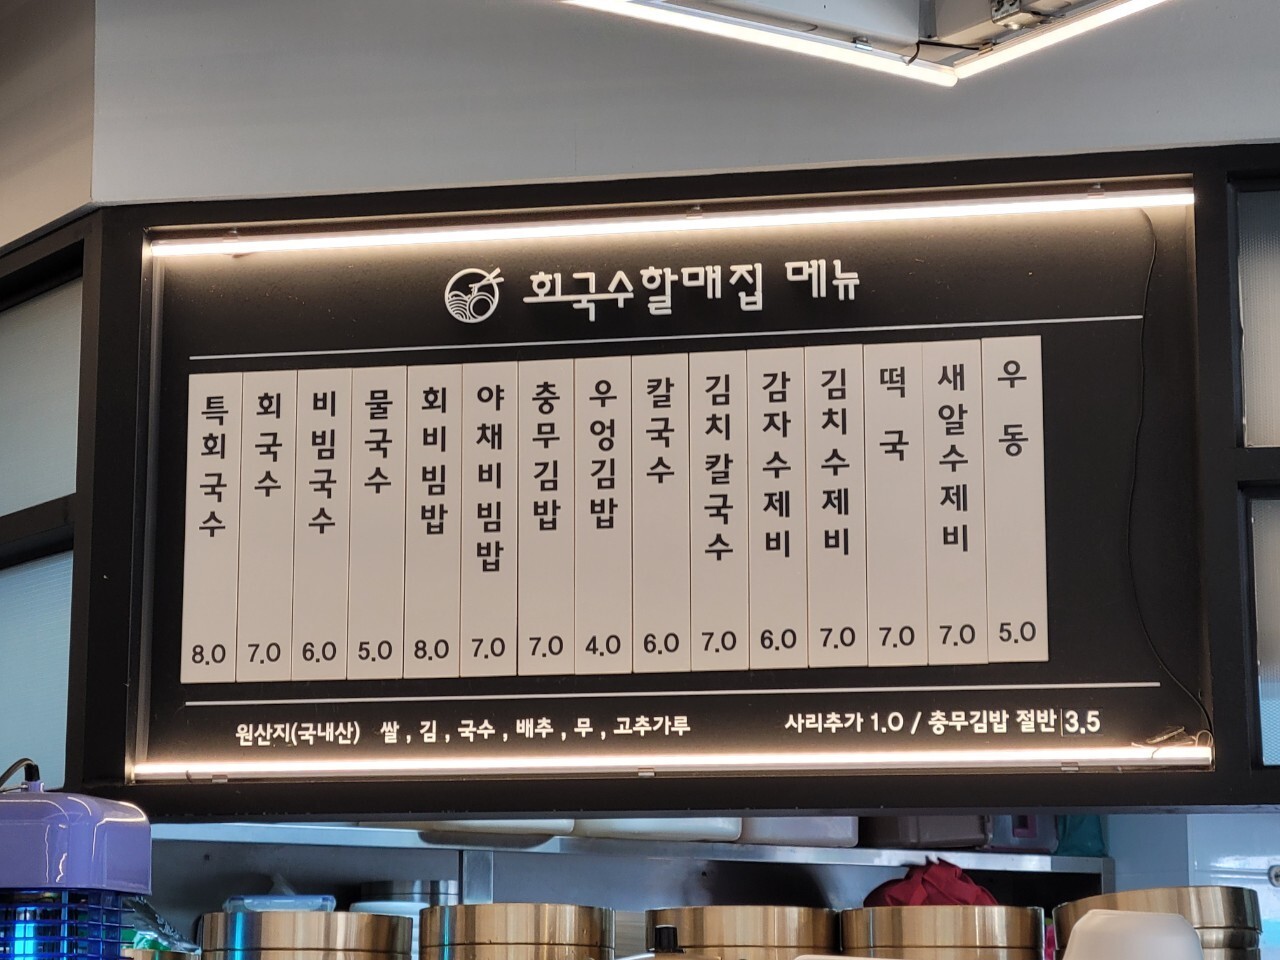 회국수할매집 메뉴
특회국수 8.0
회국수 7.0
비빔국수 6.0
물국수 5.0
회비빔밥 8.0
야채비빔밥 7.0
충무김밥 7.0
우엉김밥 4.0
칼국수 6.0
김치칼국수 7.0
감자수제비 6.0
김치수제비 7.0
떡국 7.0
새알수제비 7.0
우동 5.0
원산지(국내산) 쌀 , 김 , 국수 , 배추 , 무 , 고추가루
사리추가 1.0 / 충무김밥 절반 3.5